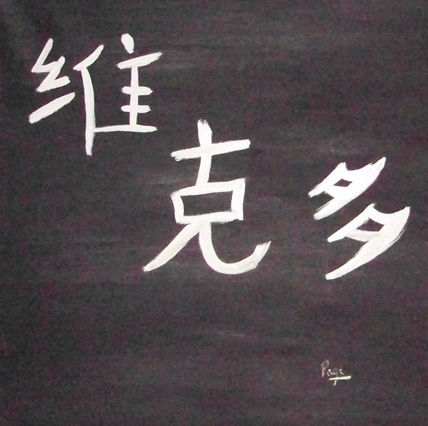 维克多
Page